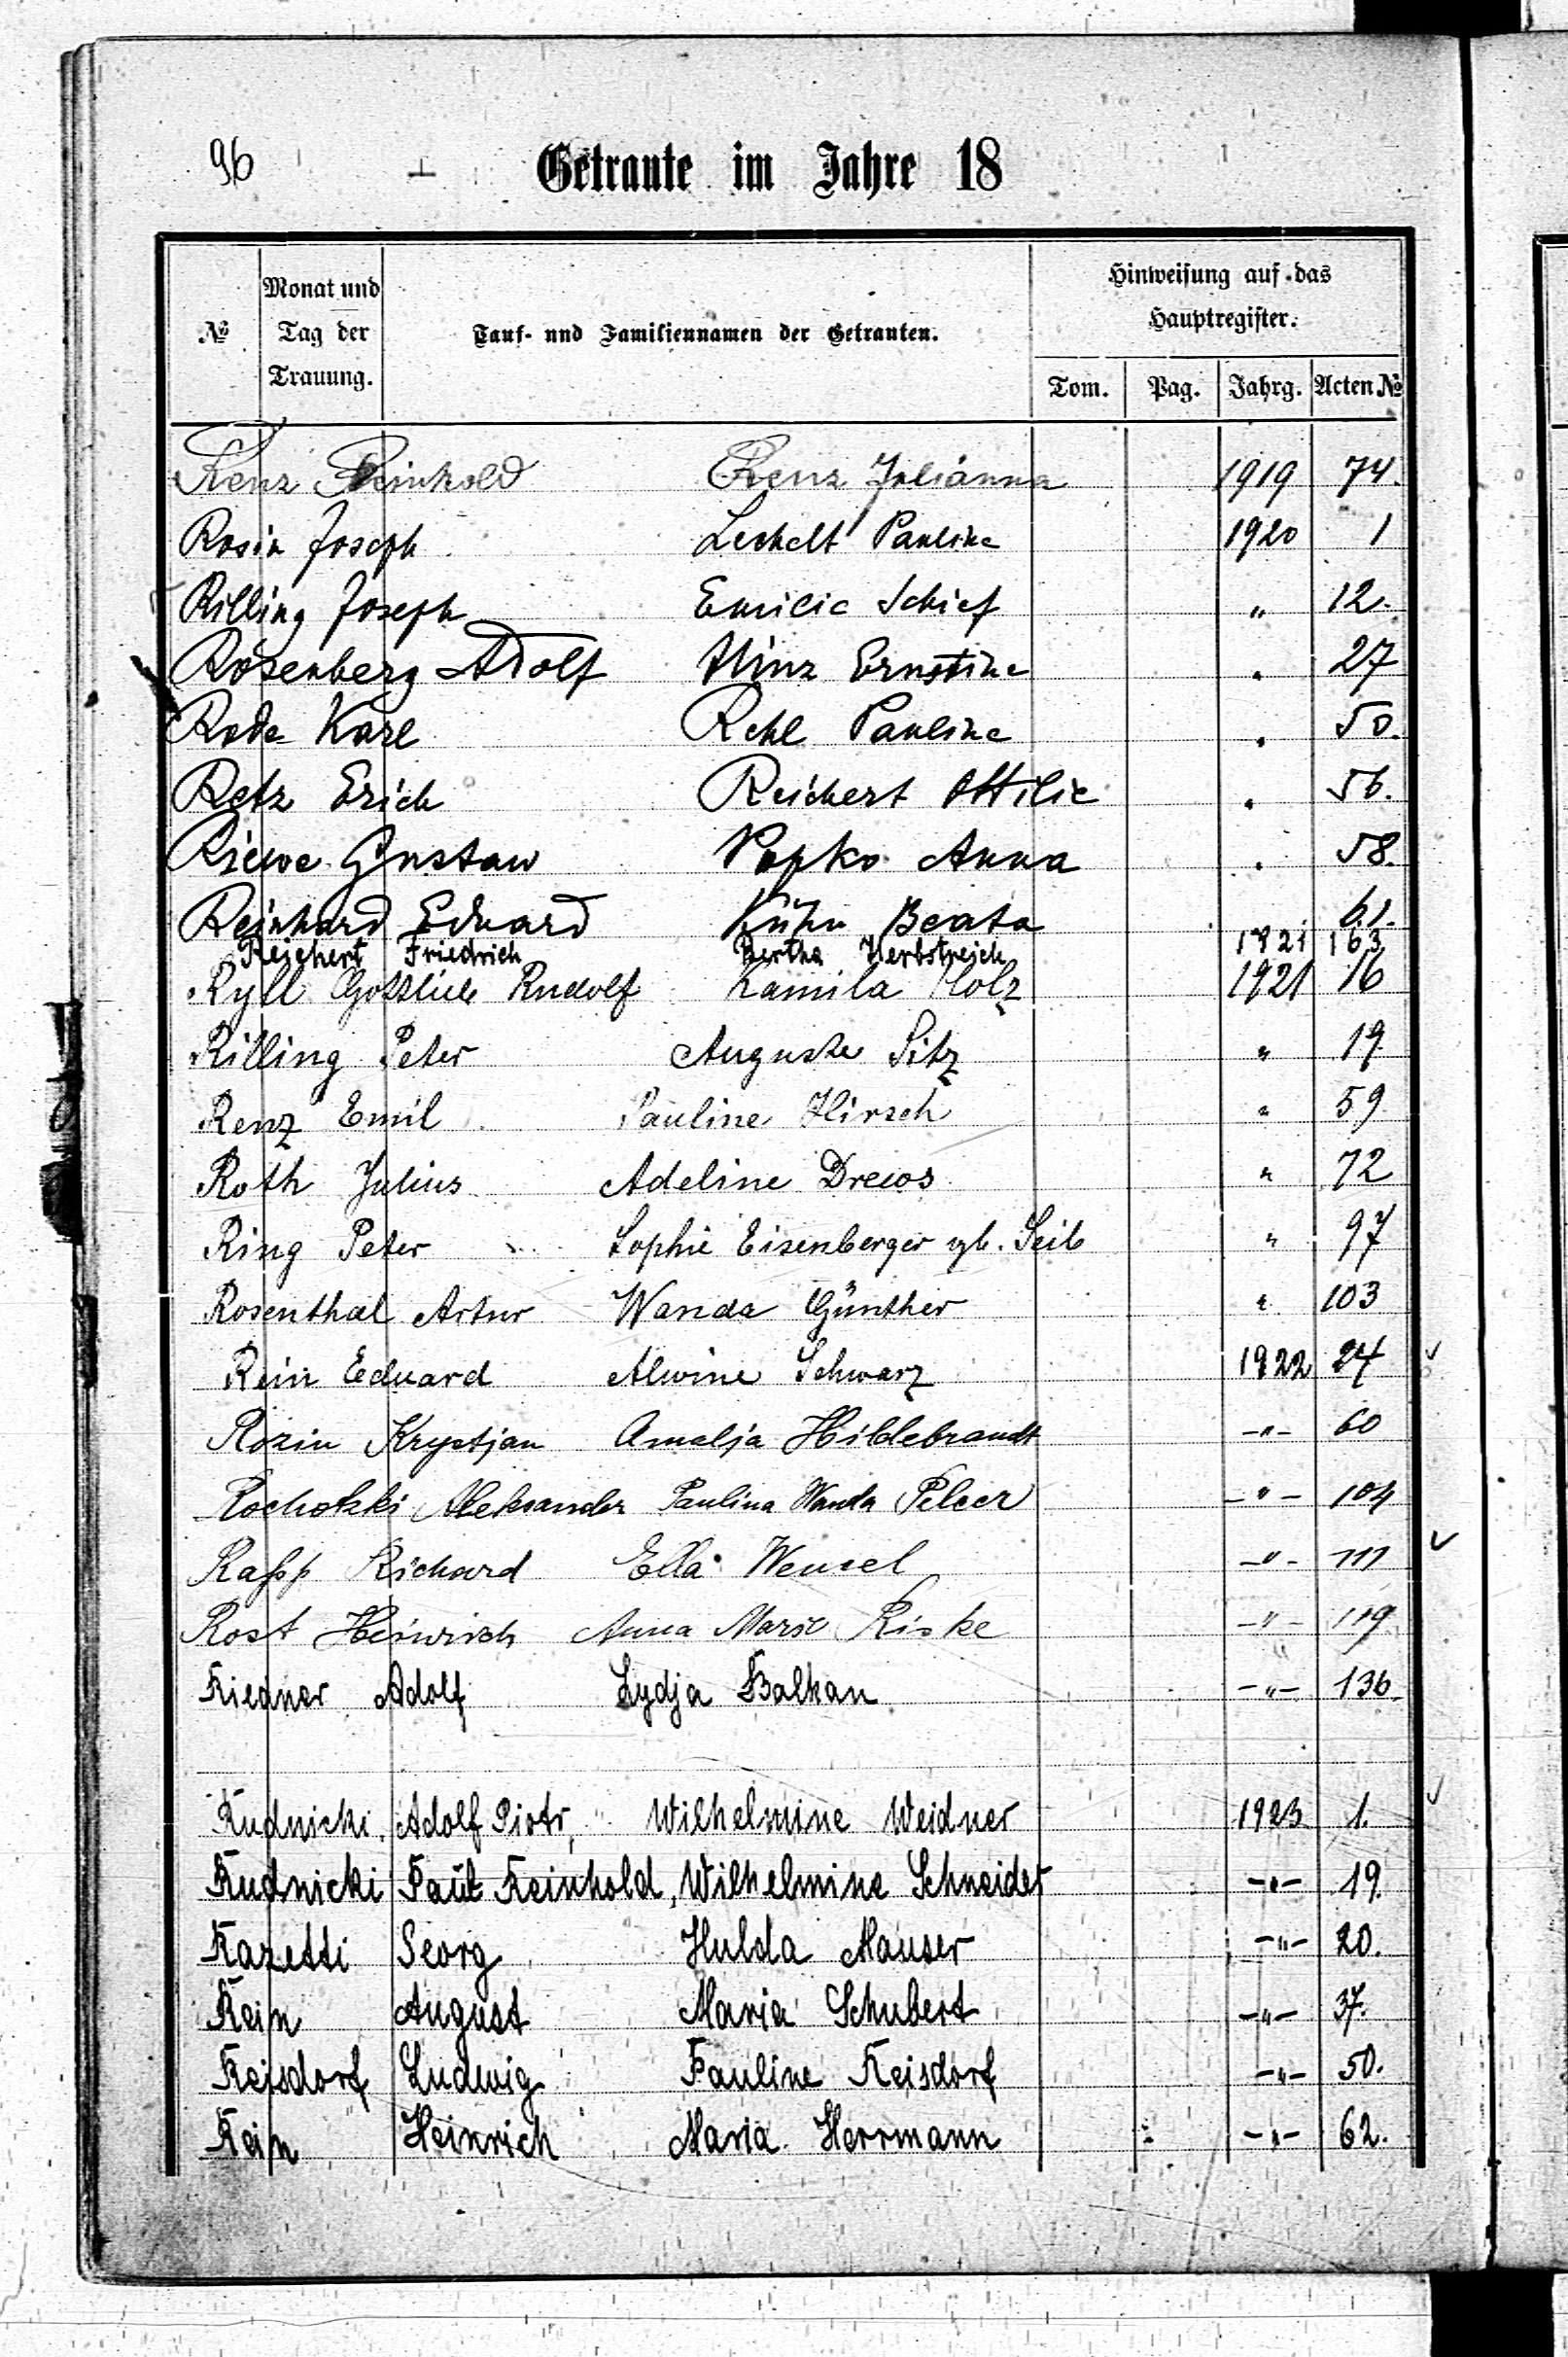 96
Getraute im Jahre 18
№ Monat und Tag der Trauung. Tauf- und Familiennamen der Getrauten. Hinweisung auf das Hauptregister.
Tom. Pag. Jahrg. Acten №
Renz Reinhold Renz Julianna 1919 74.
Rosin Joseph Lechelt Pauline 1920 1
Rilling Joseph Emilie Schief " 12.
Rosenberg Adolf Hinz Ernstine " 27
Rode Karl Rehl Pauline " 50.
Retz Erich Reichert Ottilie " 56.
Riewe Gustaw Popko Anna " 58.
Reinhard Eduard Kühn Beata 61.
Reichert Friedrich Bertha Herbstreich 1921 163
Ryll Gottlieb Rudolf Kamila Holz 1921 16
Rilling Peter Auguste Sitz " 19
Renz Emil Pauline Hirsch " 59
Roth Julius Adeline Drews " 72
Ring Peter Sophie Eisenberger gb. Seib " 97
Rosenthal Artur Wanda Günther " 103
Rein Eduard Alwine Schwarz 1922 24
Rozin Krystjan Amalja Hildebrandt -"- 60
Aleksander Paulina Wanda Pelcer -"- 104
Rapp Richard Ella Wenzel -"- 111
Rost Heinrich Anna Marie Riske -"- 119
Riedner Adolf Lydja Balkan -"- 136.
Rudnicki, Adolf Piotr, Wilhelmine Weidner 1923 1.
Rudnicki Paul Reinhold, Wilhelmine Schneider -"- 19.
Razetti Georg Hulda Mauser -"- 20.
Rein August Maria Schubert -"- 37.
Reisdorf Ludwig Pauline Reisdorf -"- 50.
Rein Heinrich Maria Herrmann -"- 62.